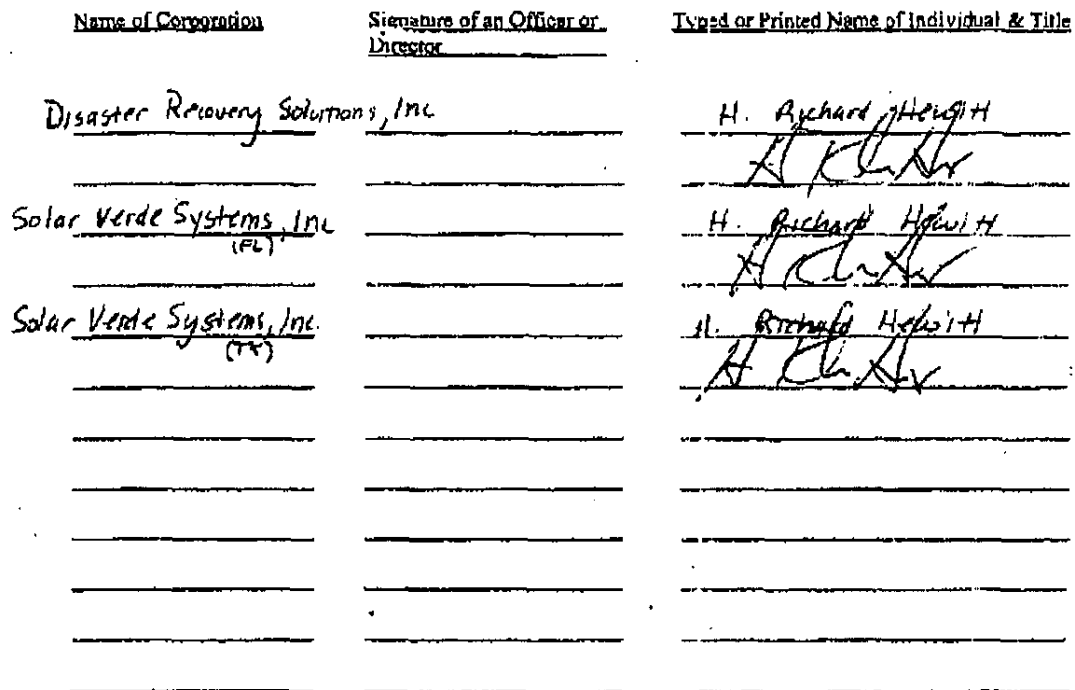 Name of Corporation Signature of an Officer or Director Typed or Printed Name of Individual & Title
Disaster Recovery Solutions, Inc H. Richard Hewitt
Solar Verde Systems, Inc H. Richard Hewitt
(FL)
Solar Verde Systems, Inc. H. Richard Hewitt
(TX)